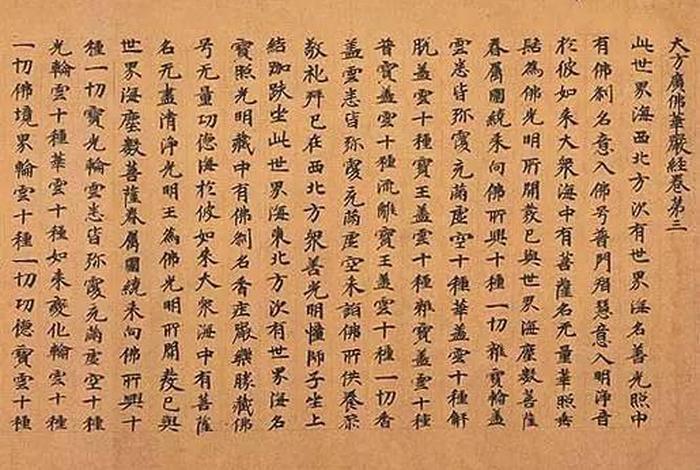 大方廣佛華嚴經卷第三
此世界海西北方次有世界海名善光照中
有佛刹名意入佛号普門智慧意入明淨音
於彼如来大衆海中有菩薩名无量華照垂
髻為佛光明所開發已與世界海塵數菩薩
眷屬圍繞来向佛所興十種一切雜寶輪蓋
雲悉皆弥覆充滿虛空十種華蓋雲十種解
脱蓋雲十種寶王蓋雲十種雜寶蓋雲十種
普寶蓋雲十種流離寶王蓋雲十種一切香
蓋雲悉皆弥覆充滿虛空来詣佛所供養恭
敬礼拜已在西北方衆善光明幢師子坐上
結跏趺坐此世界海東北方次有世界海名
寶照光明藏中有佛刹名香莊嚴樂勝藏佛
号无量功德海於彼如来大衆海中有菩薩
名无盡清淨光明王為佛光明所開發已與
世界海塵數菩薩眷屬圍繞来向佛所興十
種一切寶光輪雲悉皆弥覆充滿虛空十種
光輪雲十種華雲十種如来變化輪雲十種
一切佛境界輪雲十種一切功德寶雲十種